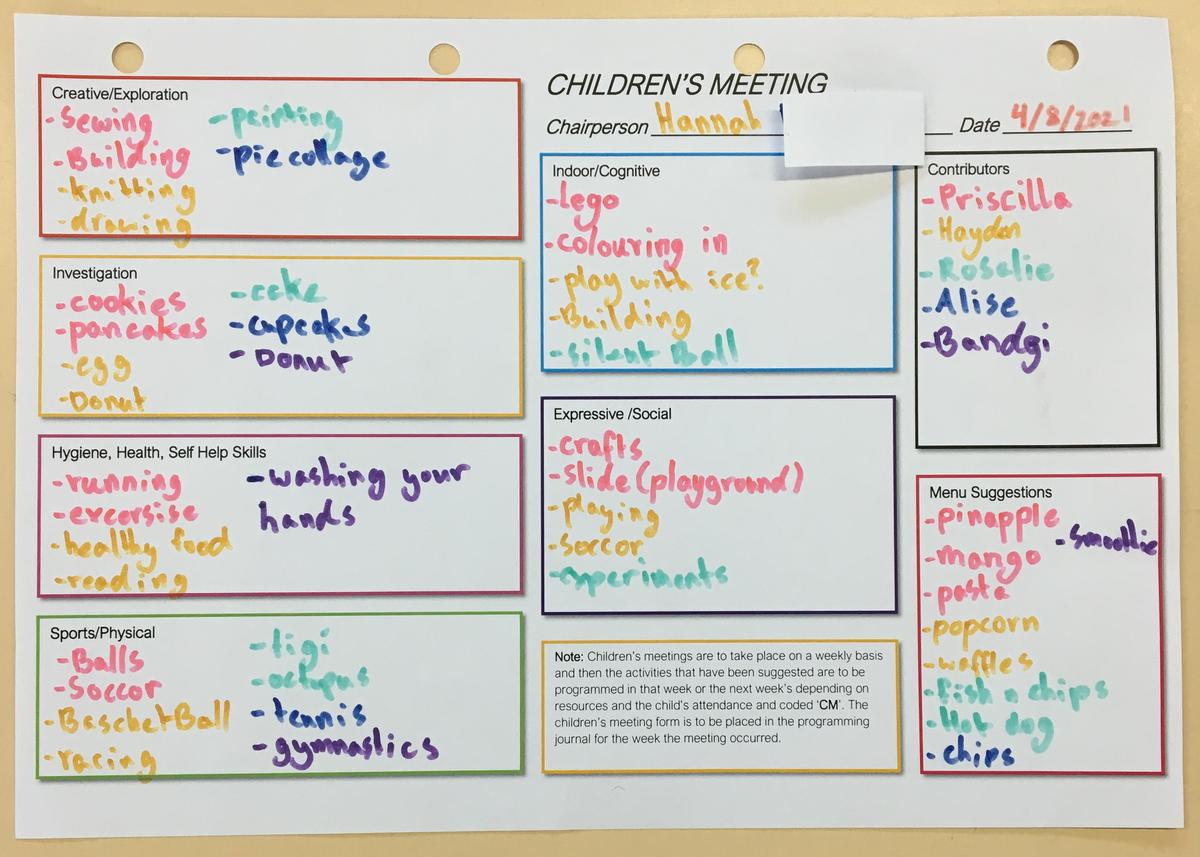 CHILDREN'S MEETING
Chairperson Hannah
Date 4/8/2021
Creative/Exploration
-Sewing
-Building
-knitting
-drawing
-painting
-piccollage
Investigation
-cookies
-pancakes
-egg
-Donut
-cake
-cupcakes
-Donut
Hygiene, Health, Self Help Skills
-running
-excorsise
-healthy food
-reading
-washing your
hands
Sports/Physical
-Balls
-Soccor
-BaschetBall
-racing
-tigi
-octupus
-tennis
-gymnastics
Indoor/Cognitive
-Lego
-colouring in
-play with ice?
-Building
-silent Ball
Expressive /Social
-crafts
-slide (playground)
-playing
-soccor
-experiments
Note: Children's meetings are to take place on a weekly basis
and then the activities that have been suggested are to be
programmed in that week or the next week's depending on
resources and the child's attendance and coded 'CM'. The
children's meeting form is to be placed in the programming
journal for the week the meeting occurred.
Contributors
-Priscilla
-Hayden
-Roselie
-Alise
-Bandgi
Menu Suggestions
-pinapple
-mango
-pasta
-popcorn
-waffles
-Fish n chips
-Hot dog
-chips
-Smoothie